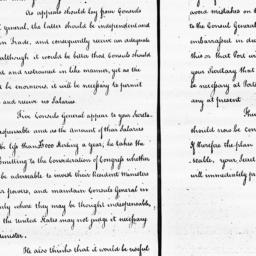 As appeals should lay from Consuls
general, the latter should be independent and
in Trade, and consequently receive an adequate
although it would be better that Consuls should
and restrained in like manner, yet as the
be enormous, it will be necessary to permit
and receive no Salaries
Five Consuls General appear to your Secre
and as the amount of their Salaries
be less than Dollars a year, he takes the
submitting to the Consideration of Congress whether
be adviseable to invest their Resident Ministers
powers, and maintain Consuls General in
only where they may be thought indispensable,
the United States may not judge it necessary
Minister.
He also thinks that it would be useful
avoid mistakes on t
to the Consul General
embarrassed in du
this or that Port wi
your Secretary that
be necessary at Port
any at present
should now be con
If therefore the plan
seable, your Secre
will immediately pr